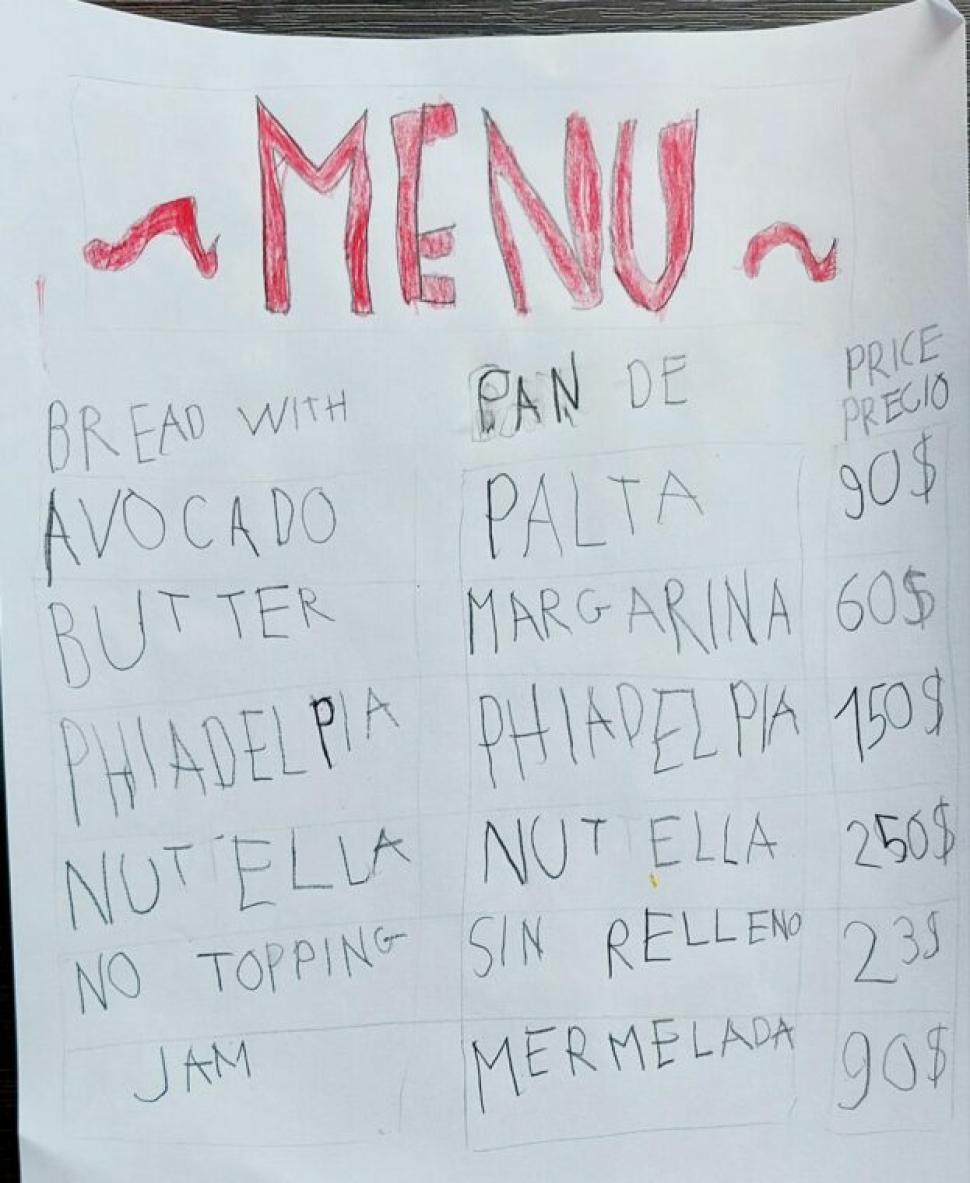 ~ MENU ~
BREAD WITH PAN DE PRICE PRECIO
AVOCADO PALTA 90$
BUTTER MARGARINA 60$
PHIADELPIA PHIADELPIA 150$
NUTELLA NUTELLA 250$
NO TOPPING SIN RELLENO 23$
JAM MERMELADA 90$